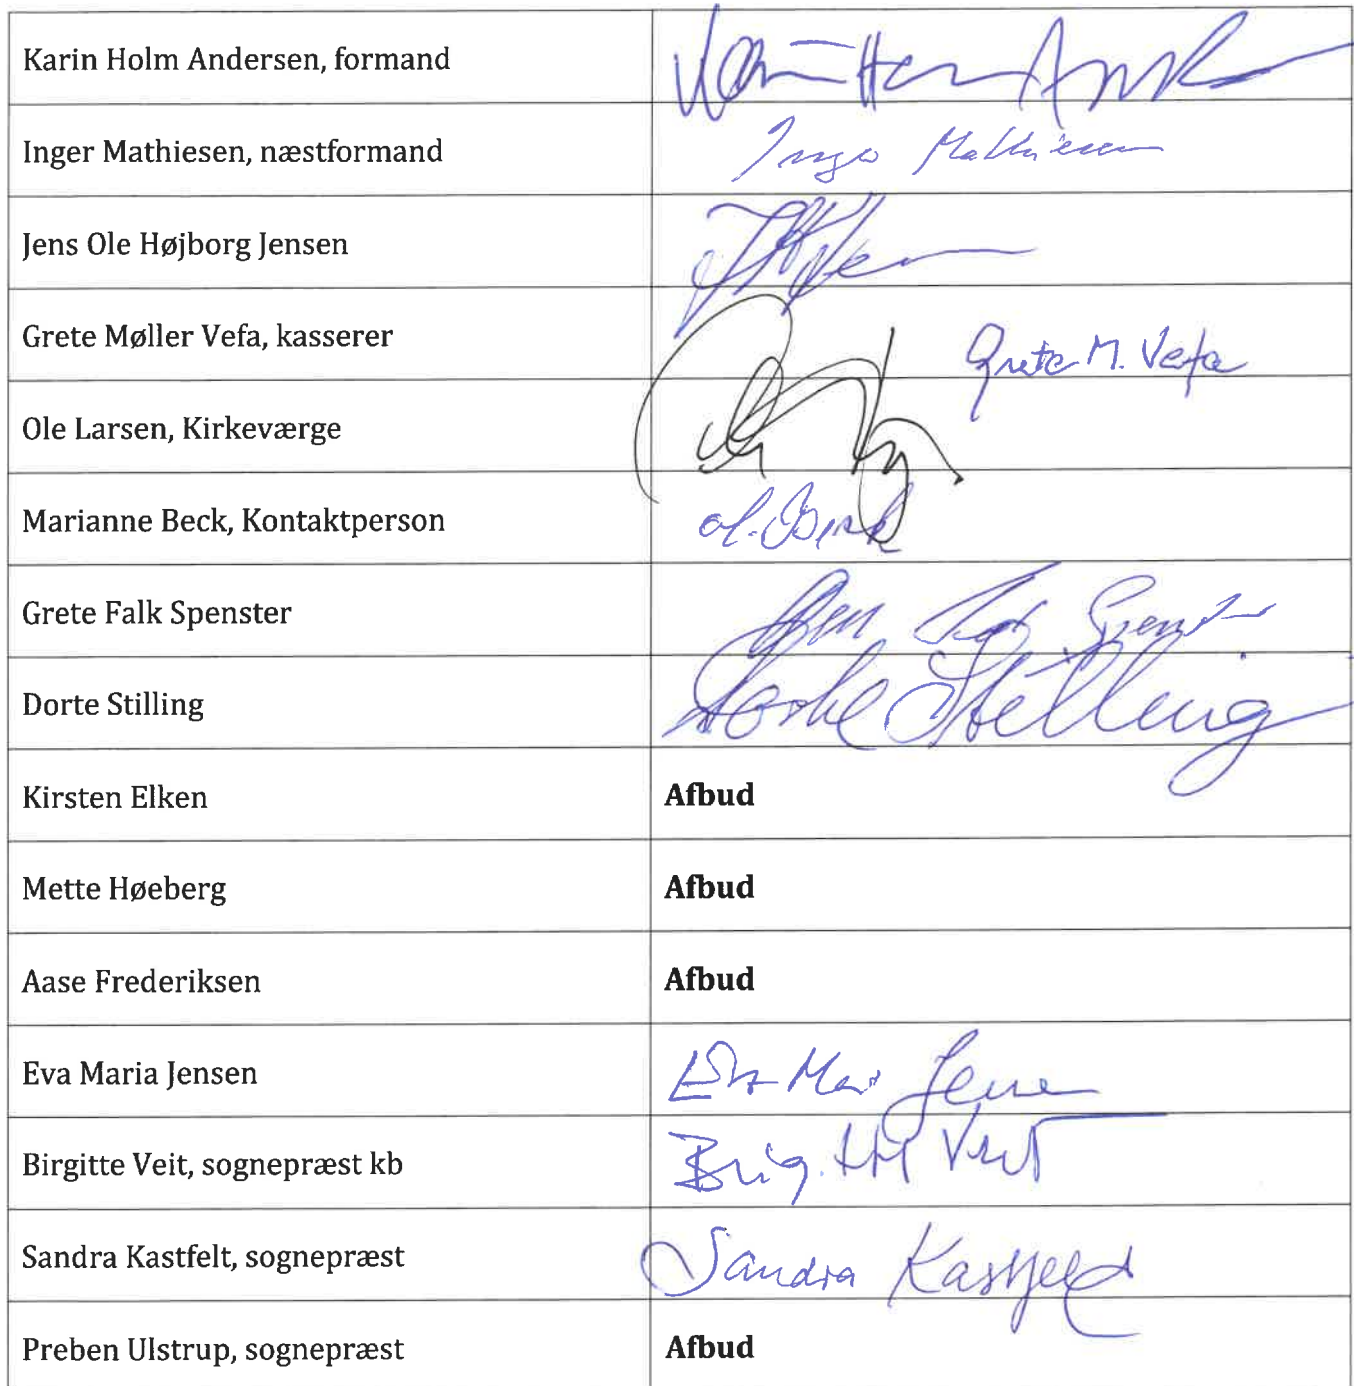 Karin Holm Andersen, formand
Inger Mathiesen, næstformand Mathiesen
Jens Ole Højborg Jensen
Grete Møller Vefa, kasserer Grete M. Vefa
Ole Larsen, Kirkeværge
Marianne Beck, Kontaktperson
Grete Falk Spenster
Dorte Stilling Dorte Stilling
Kirsten Elken Afbud
Mette Høeberg Afbud
Aase Frederiksen Afbud
Eva Maria Jensen
Birgitte Veit, sognepræst kb
Sandra Kastfelt, sognepræst Sandra Kastfelt
Preben Ulstrup, sognepræst Afbud